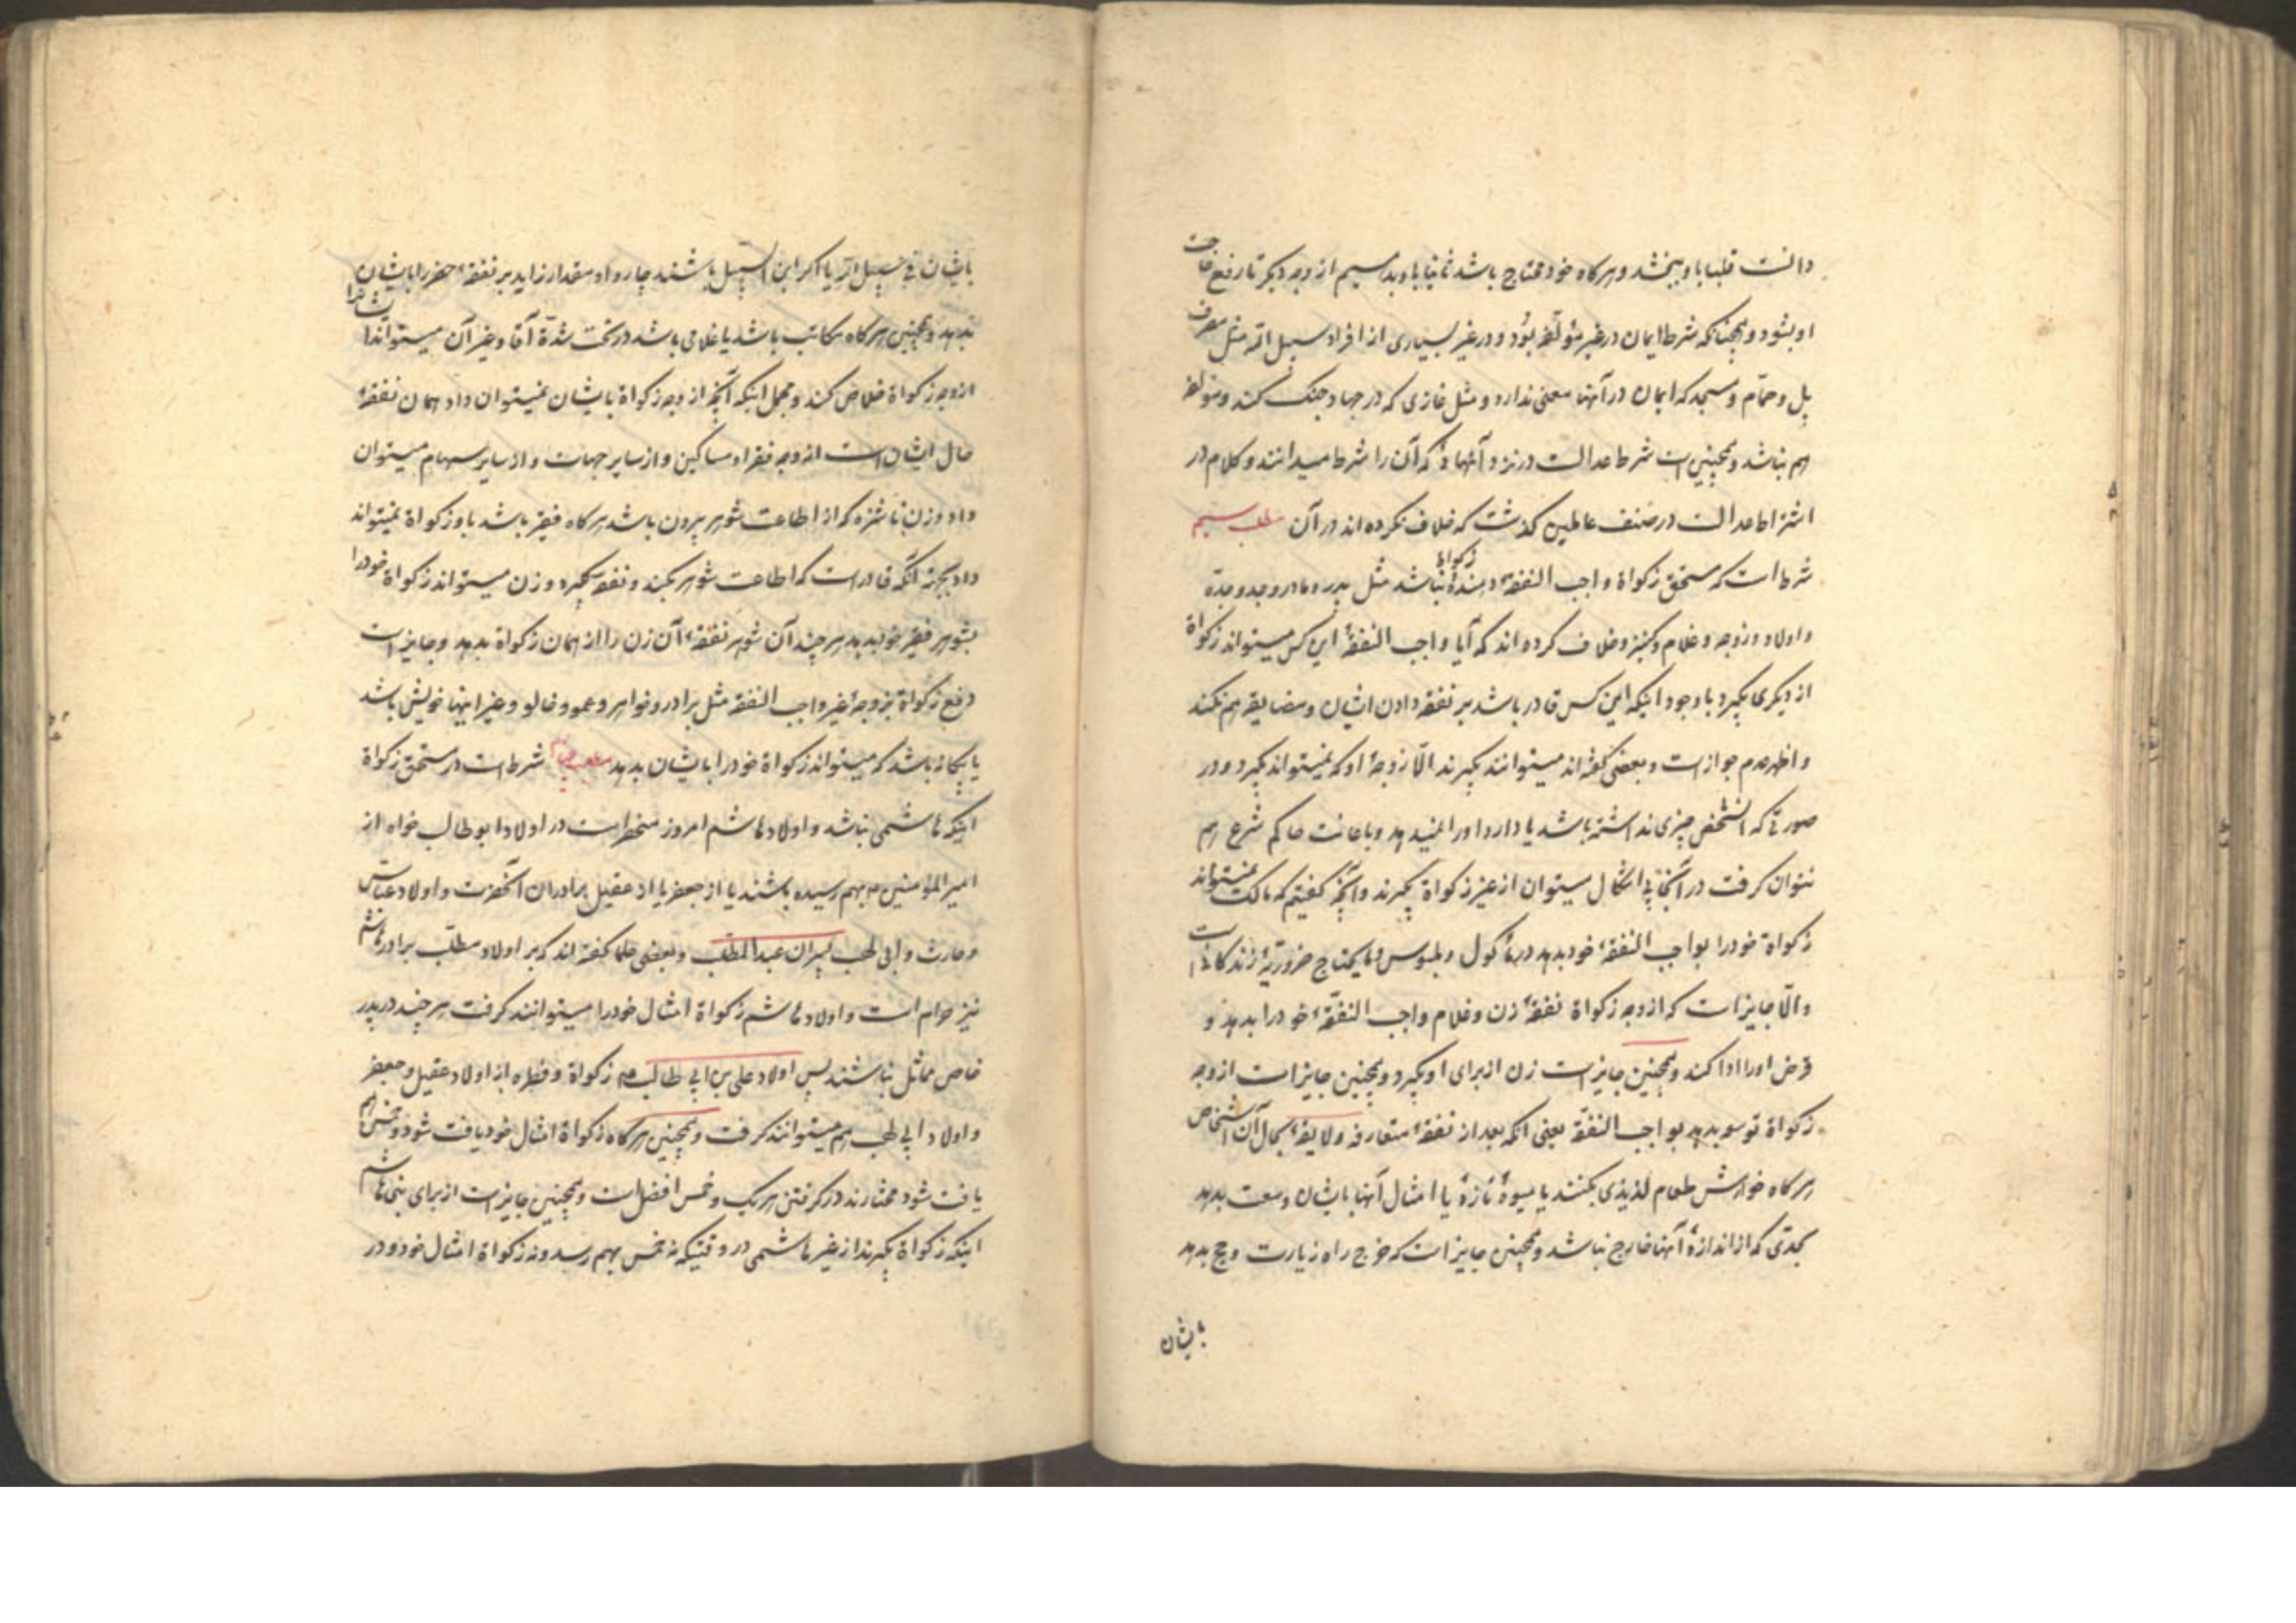 دانست قلبا باو ببخشد و هر کاه خود محتاج باشد ثانیا باو بدهد سیم از وجه دیکر تا رفع حاجت
او بشود و همچنانکه شرط ایمان در غیر مؤلفه بود و در غیر بسیاری از افراد سبیل الله مثل مصرف
پل و حمّام و مسجد که ایمان در آنها معنی ندارد و مثل غازی که در جهاد جنک کند و مؤلفه
هم نباشد و همچنین است شرط عدالت در نزد آنهائی که آن را شرط میدانند و کلام در
اشتراط عدالت در صنف عاملین کذشت که خلاف نکرده اند در آن مطلب سیم
شرط است که مستحق زکواة واجب النفقهٔ دهندهٔ زکواة نباشد مثل پدر و مادر و جد و جدّه
و اولاد و زوجه و غلام و کنیز و خلاف کرده اند که آیا واجب النفقهٔ این کس میتواند زکواة
از دیکری بکیرد با وجود اینکه این کس قادر باشد بر نفقه دادن ایشان و مضایقه هم نکند
و اظهر عدم جواز است و بعضی کفته اند میتوانند بکیرند الّا زوجهٔ او که نمیتواند بکیرد و در
صورتی که آنشخص چیزی نداشته باشد یا دارد او را نمیدهد و باعانت حاکم شرع هم
نتوان کرفت در آنجا بی اشکال میتوان از غیر زکواة بکیرند و آنچه کفتیم که مالک نمیتواند
زکواة خود را بواجب النفقهٔ خود بدهد در مأکول و ملبوس و مایحتاج ضروریهٔ زندکانی است
و الّا جایز است که از وجه زکواة نفقهٔ زن و غلام واجب النفقهٔ خود را بدهد و
قرض او را ادا کند و همچنین جایز است زن از برای او بکیرد و همچنین جایز است از وجه
زکواة توسعه بدهد بواجب النفقه یعنی آنکه بعد از نفقهٔ متعارفه و لایقهٔ بحال آن اشخاص
هر کاه خواهش طعام لذیذی بکنند یا میوهٔ تازهٔ یا امثال آنها بایشان وسعت بدهد
بحدّی که از اندازهٔ آنها خارج نباشد و همچنین جایز است که خرج راه زیارت و حج بدهد
بایشان
بایشان فی سبیل الله یا اکر ابن السبیل باشند چاروا و مقدار زاید بر نفقهٔ حضر را بایشان
بدهد و همچنین هر کاه مکاتب باشد یا غلامی باشد در تحت شدّة آقا و غیر آن میتواند ایشانرا
از وجه زکواة خلاص کند و مجمل اینکه آنچه از وجه زکواة بایشان نمیتوان داد همان نفقهٔ
حال ایشان است از وجه فقراء و مساکین و از سایر جهات و از سایر سهام میتوان
داد و زن ناشزه که از اطاعت شوهر بیرون باشد هر کاه فقیر باشد باو زکواة نمیتواند
داد بجهة آنکه قادر است که اطاعت شوهر بکند و نفقه بکیرد و زن میتواند زکواة خود را
بشوهر فقیر خود بدهد هر چند آن شوهر نفقهٔ آن زن را از همان زکواة بدهد و جایز است
دفع زکواة بزوجهٔ غیر واجب النفقه مثل برادر و خواهر و عمو و خالو و غیر اینها خویش باشد
یا بیکانه باشد که میتواند زکواة خود را بایشان بدهد مطلب چهارم شرط است در مستحق زکواة
اینکه هاشمی نباشد و اولاد هاشم امروز منحصر است در اولاد ابوطالب خواه از
امیر المؤمنین ع بهم رسیده باشند یا از جعفر یا از عقیل برادران آنحضرت و اولاد عباس
و حارث و ابی لهب پسران عبد المطلب و بعضی علما کفته اند که بر اولاد مطلّب برادر هاشم
نیز حرام است و اولاد هاشم زکواة امثال خود را میتوانند کرفت هر چند در پدر
خاص مماثل نباشند پس اولاد علی بن ابی طالب ع زکواة و فطره از اولاد عقیل و جعفر
و اولاد ابی لهب هم میتوانند کرفت و همچنین هر کاه زکواة امثال خود یافت شود و خمس هم
یافت شود مختارند در کرفتن هر یک و خمس افضل است و همچنین جایز است از برای بنی هاشم
اینکه زکواة بکیرند از غیر هاشمی در وقتیکه نه خمس بهم رسد و نه زکواة امثال خود و در